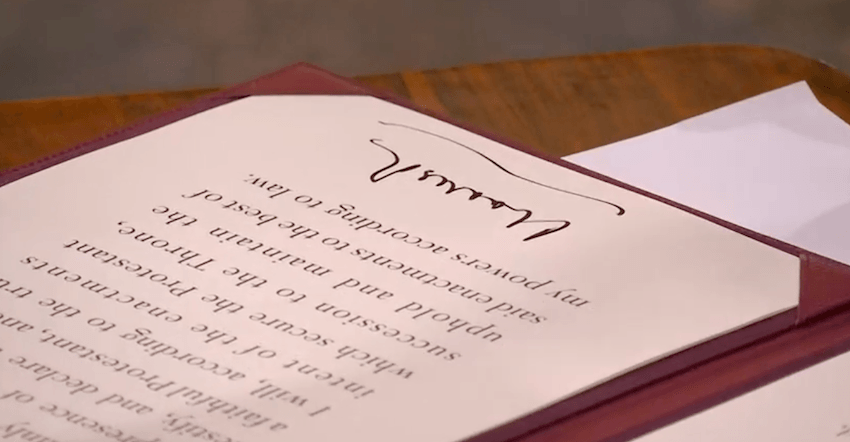 presence of
estify, and declare
a faithful Protestant, and
I will, according to the tru
intent of the enactments
which secure the Protestant
succession to the Throne,
uphold and maintain the
said enactments to the best of
my powers according to law.
Charles R